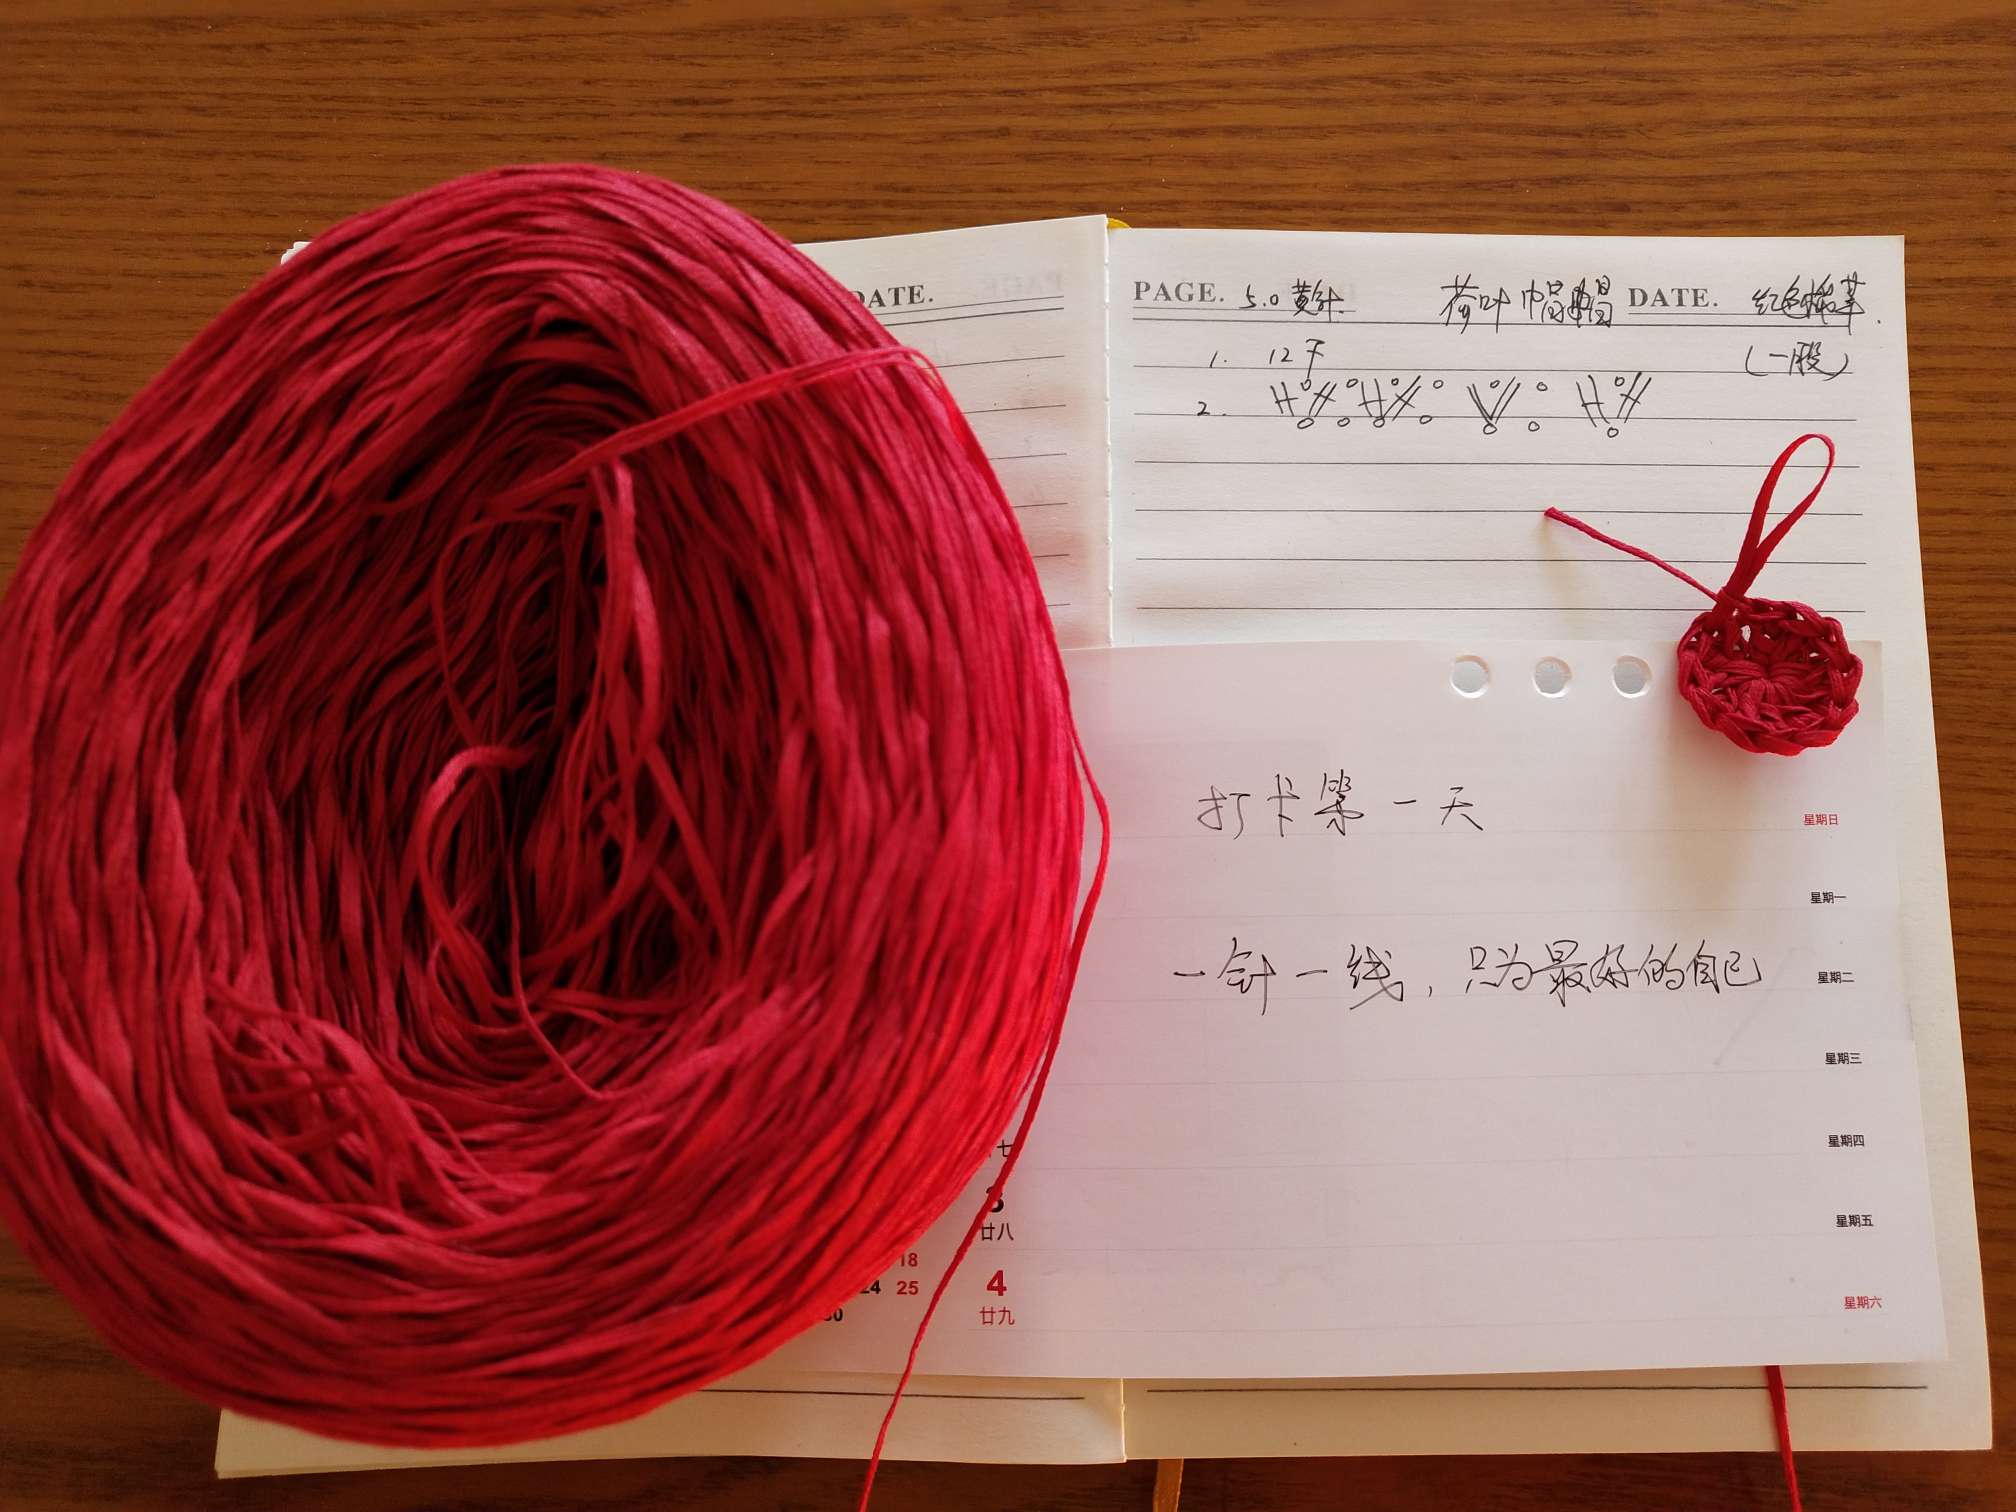 DATE.
PAGE. 5.0 黄针 荷叶帽 DATE. 红色棉草.
1. 12下 (一股)
2.
打卡第一天
星期日
星期一
一针一线,只为最好的自己
星期二
星期三
星期四
七
星期五
3
廿八
18
24 25
4
廿九
30
星期六